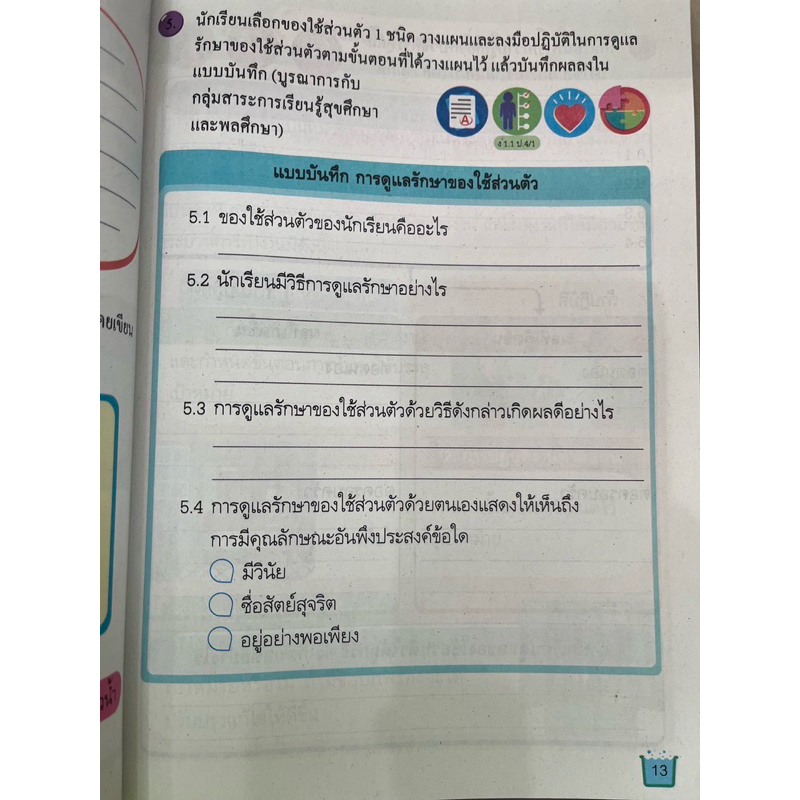 5. นักเรียนเลือกของใช้ส่วนตัว 1 ชนิด วางแผนและลงมือปฏิบัติในการดูแล
รักษาของใช้ส่วนตัวตามขั้นตอนที่ได้วางแผนไว้ แล้วบันทึกผลลงใน
แบบบันทึก (บูรณาการกับ
กลุ่มสาระการเรียนรู้สุขศึกษา
และพลศึกษา)
A
ง 1.1 ป.4/1
แบบบันทึก การดูแลรักษาของใช้ส่วนตัว
5.1 ของใช้ส่วนตัวของนักเรียนคืออะไร
5.2 นักเรียนมีวิธีการดูแลรักษาอย่างไร
5.3 การดูแลรักษาของใช้ส่วนตัวด้วยวิธีดังกล่าวเกิดผลดีอย่างไร
5.4 การดูแลรักษาของใช้ส่วนตัวด้วยตนเองแสดงให้เห็นถึง
การมีคุณลักษณะอันพึงประสงค์ข้อใด
มีวินัย
ซื่อสัตย์สุจริต
อยู่อย่างพอเพียง
13